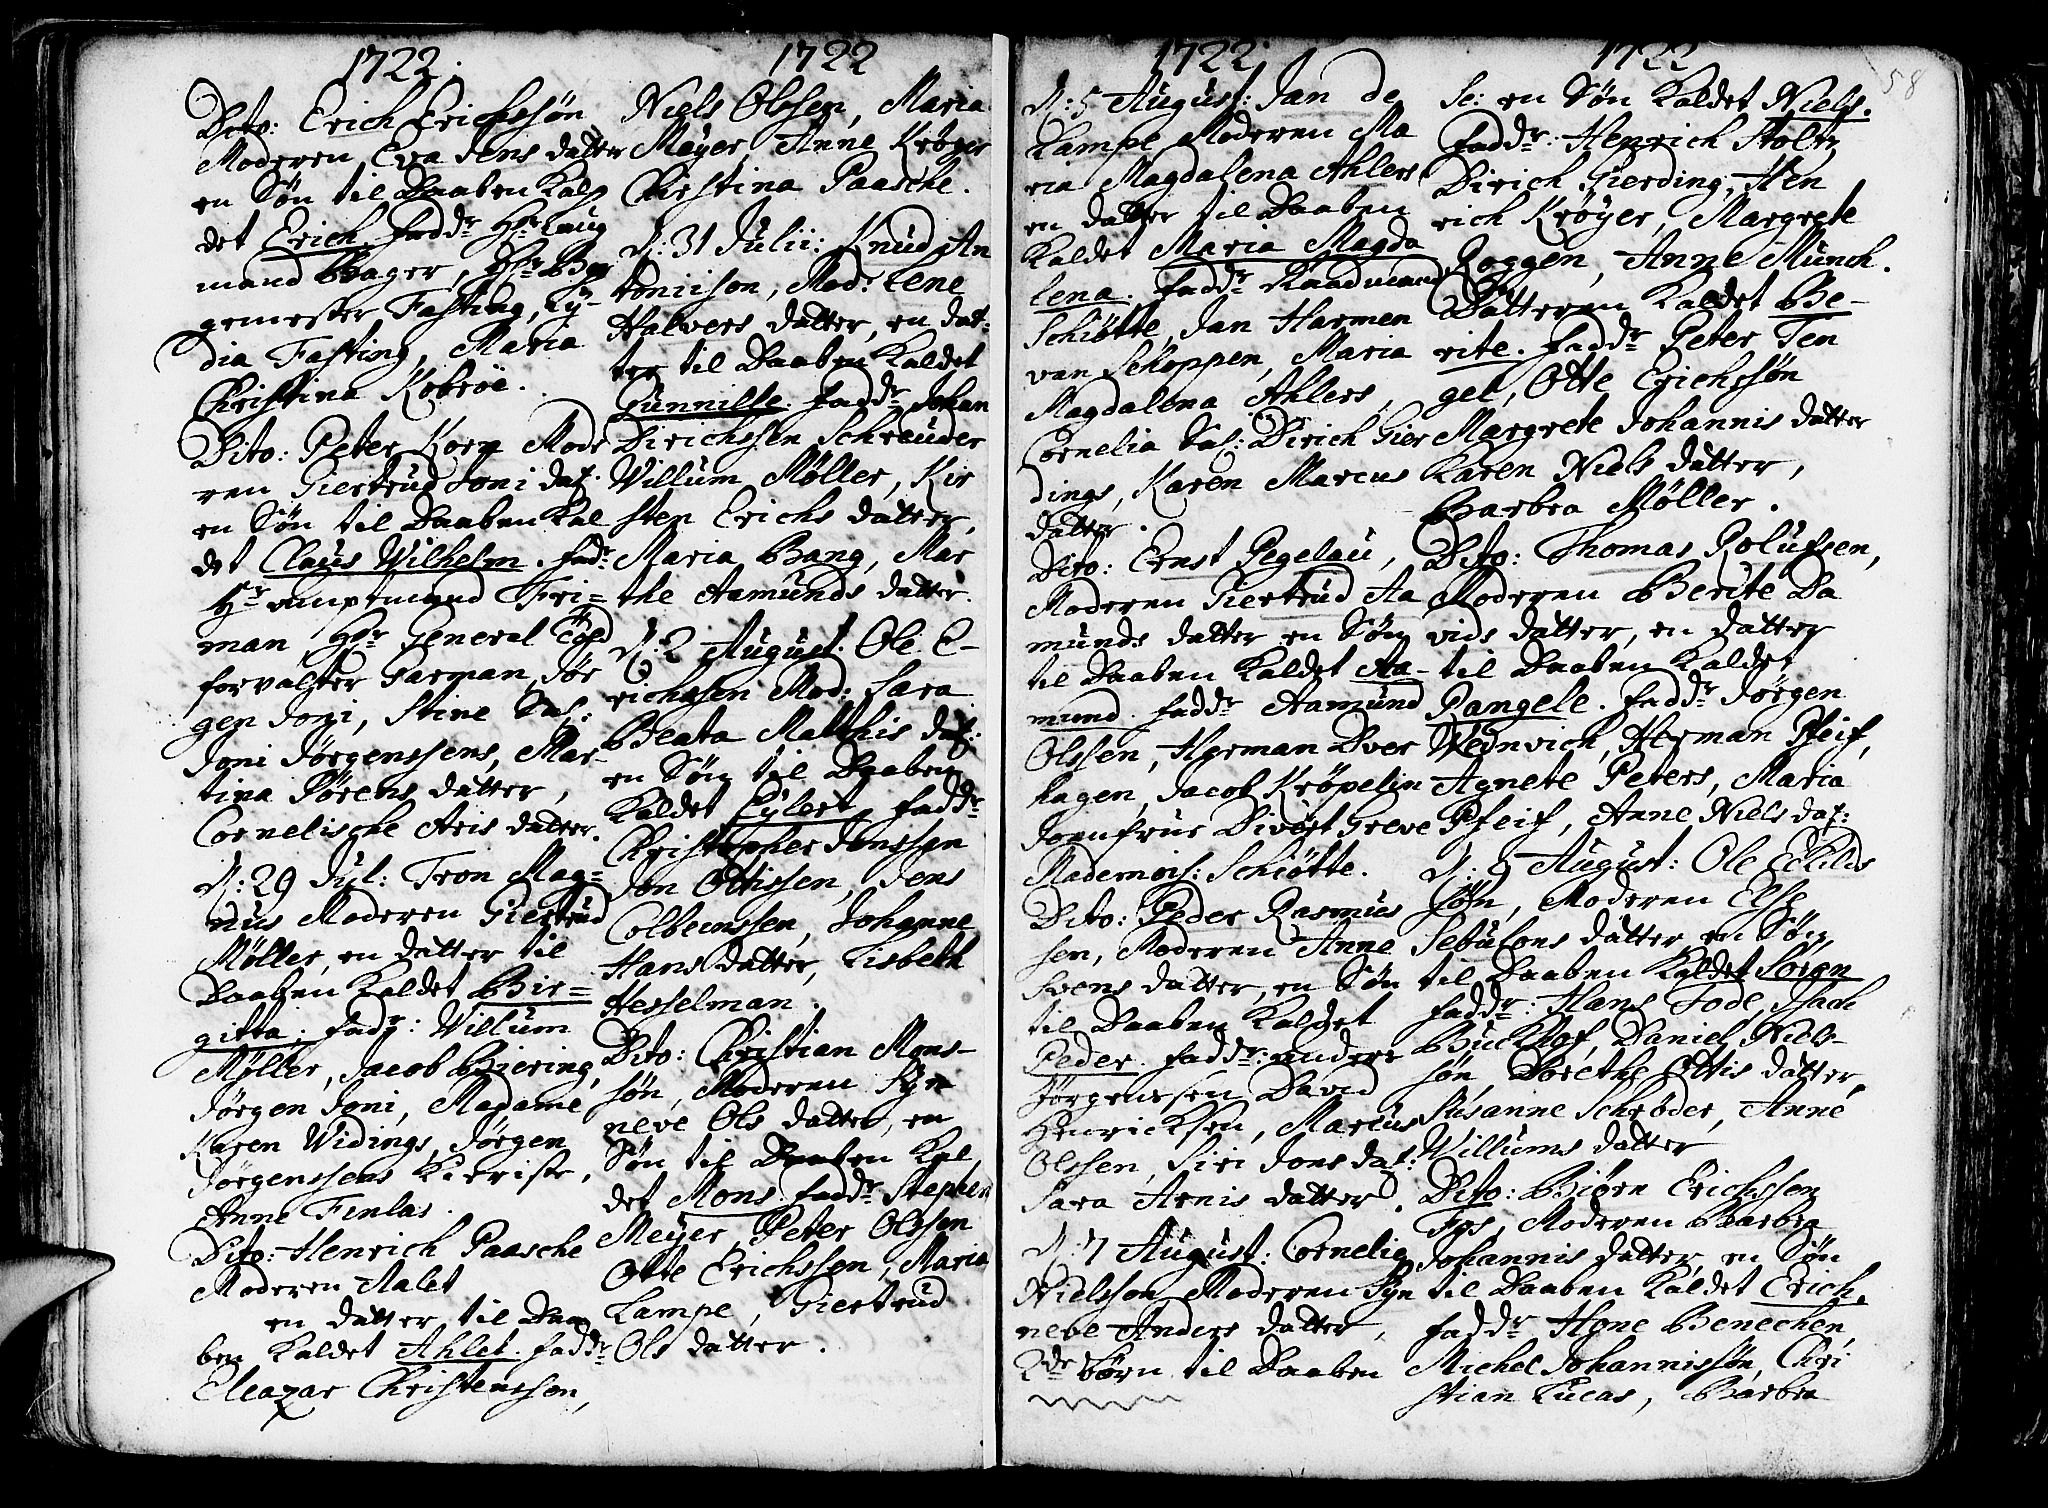 1722.
Dito: Erich Erichssøn
Moderen Eva Jens datter
en Søn til Daaben Kal
det Erich. fadd.r H.r Laug
mand Bager, H.r Bor
gemester Fasting, Ly-
dia Fasting, Maria
Christina Kobrøe.
Dito: Peter Korn Mode
ren Giertrud Joni dat.
en Søn til Daaben Kal
det Claus Wilhelm. fad.r
H.r Hauptmand Fri=
man, H.r General Told
forvalter Garman, Jør
gen Joni, Stine Sal:
Joni Jørgenssens, Mar-
tina Sørens datter,
Cornelische Aris datter.
D: 29 Jul: Tron Mag=
nus Moderen Giertrud
Møller, en datter til
Daaben Kaldet Bir=
gitta; fadr: Willum
Møller, Jacob Biering,
Jørgen Joni, Madame
Karen Widings, Jørgen
Jørgenssens Kieriste,
Anne Finlas.
Dito: Henrich Paasche
Moderen Aalet
en datter til Daa
ben kaldet Ahlet. fadd.r
Eleazar Christenssøn,
1722
Niels Olssen, Maria
Meyer, Anne Krøger
Christina Paasche.
D: 31 Julii: Knud An
toniison, Mod: Lene
Halvers datter, en dat-
ter til Daaben Kaldet
Gunnille. fadd.r Johan
Dirichssen Schreuder
Willum Møller, Kir
sten Erichs datter,
Maria Bang, Mar
the Aamunds datter.
D: 2 August. Ole E-
richssen Mod: Sara
Beata Matthis dat:
en Søn til Daaben
Kaldet Eylert, fadd.r
Christopher Jonssen
Jon Ottissen, Jens
Colbeinssen, Johanne
Hans datter, Lisbeth
Hesselman.
Dito: Christian Mons-
søn, Moderen Syn
neve Ols datter, en
Søn til Daaben Kal
det Mons. fadd.r Stephen
Meyer, Peter Olssen
Otte Erichssen, Maria
Lampe, Giertrud
Ols datter.
1722.
D: 5 August: Jan de
Lampe Moderen Ma
ria Magdalena Ahlers
en datter til Daaben
Kaldet Maria Magda
lena. fadd.r Raadmand
Schiøtte, Jan Harmen
van Schoppen, Maria
Magdalena Ahlers,
Cornelia Sal: Dirich Gier
dings, Karen Marcus
datter.
Dito: Ernst Pegelau,
Moderen Giertrud Aa
munds datter en Søn
til Daaben Kaldet Aa-
mund. fadd.r Aamund
Olssen, Herman Dver
hagen, Jacob Krøpelin
Jomfrue Divert Greve
Mademois: Schiøtte.
Dito: Peder Rasmus
sen, Moderen Anne
Svens datter, en Søn
til Daaben Kaldet
Peder. fadd.r: anders
Jørgenssen David
Henricksen, Marcus
Olssen, Siri Jons dat:
Sara Arnis datter.
D: 7 August: Cornelie
Nielsson Moderen Syn
neve Anders datter,
2de Børn til Daaben
1722
58
Se: en Søn Kaldet Niels.
fadd.r: Henrich Stolt,
Dirich Gierding, Hen
rich Krøyer, Margrete
Roggen, Anne Münch.
Datteren Kaldet Be-
rite. fadd.r Peter Ten
gel, Otte Erichssøn
Margrete Johannis datter
Karen Niels datter,
Barbra Møller.
Dito: Thomas Rolufsen,
Moderen Berite Da
vids datter, en datter
til Daaben Kaldet
Pangele. fadd.r Jørgen
Wednvich, Herman Pfeif,
Agnete Peters, Maria
Pfeif, Anne Niels dat:
D: 9 August: Ole Eskilds
søn, Moderen Else
Sebulons datter, en Søn
til Daaben Kaldet Søren
fadd.r: Hans Tode, Isach
Buckhof, Daniel Niels-
søn, Dorethe Ottis datter,
Susanne Schrøder, Anne
Willums datter
Dito: Biørn Erichssen
Fys, Moderen Barbra
Johannis datter, en Søn
til Daaben Kaldet Erich.
fadd.r Hone Benechen,
Michel Johannissøn, Chri
stian Lucas, Barbra